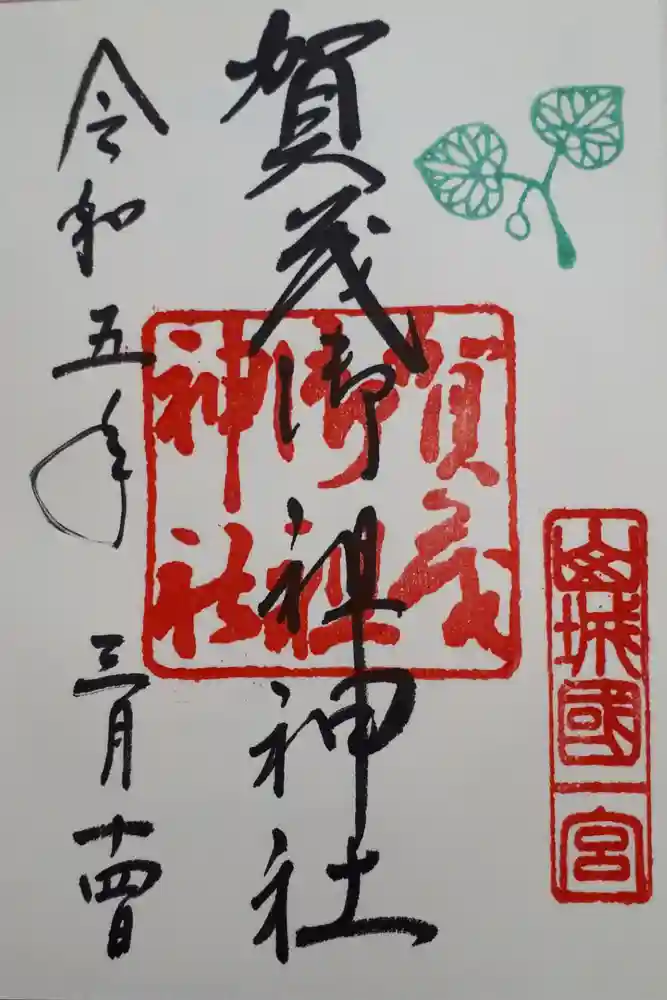 山城國一宮
賀茂御祖神社
賀茂
御祖
神社
令和五年 三月十四日